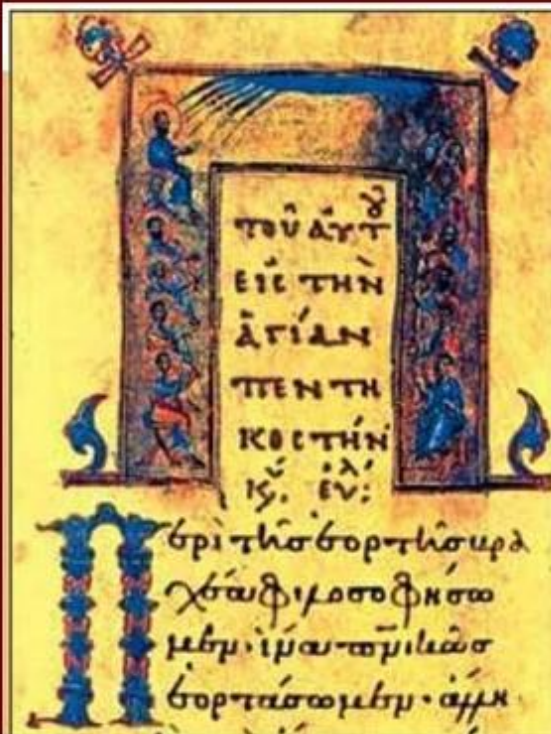 ΤΟῦ ΑὐΤοῦ
ΕΙC ΤῊΝ
ἉΓΊΑΝ
ΠΕΝΤΗ
ΚΟCΤΉΝ
Περὶ τῆς ἑορτῆς βρα
χέα φιλοσοφήσω
μεν· ἵνα πνικῶς
ἑορτάσωμεν· ἄλλη